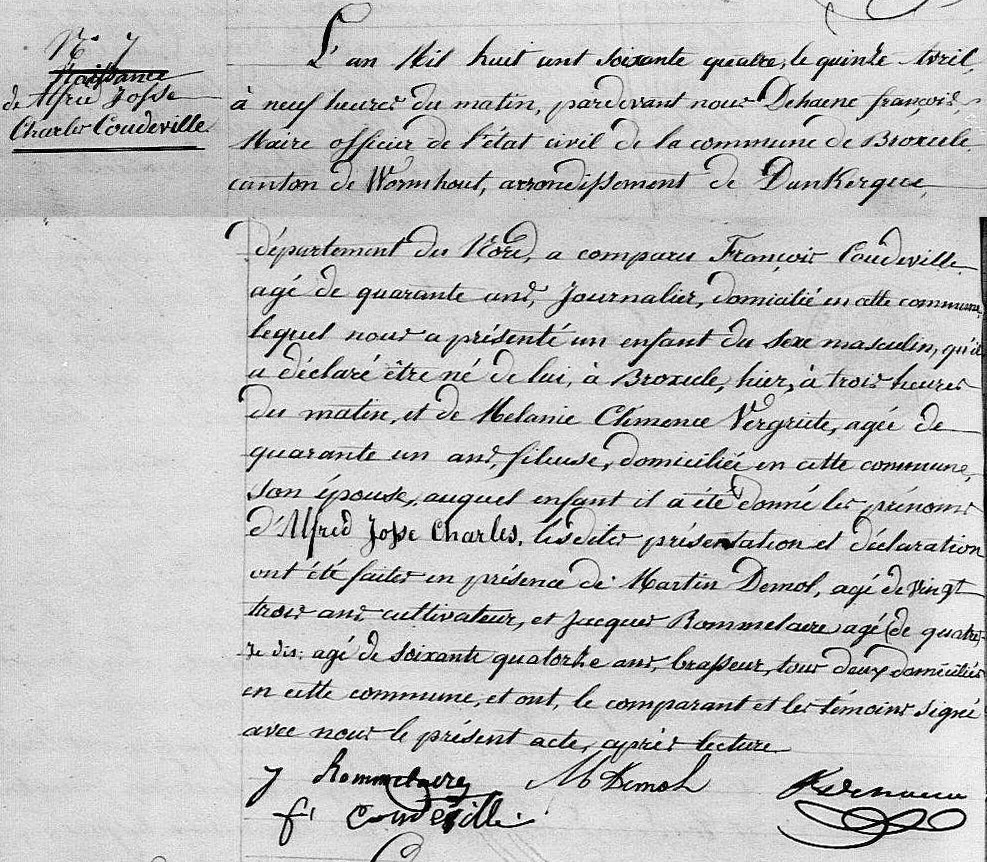 N° 7
Naissance
de Alfred Josse
Charles Coudeville
L'an Mil huit cent soixante quatre, le quinze Avril,
à neuf heures du matin, pardevant nous Dehaene françois
Maire officier de l'état civil de la commune de Broxeele
canton de Wormhout, arrondissement de Dunkerque,
département du Nord, a comparu François Coudeville
agé de quarante ans, Journalier, domicilié en cette commune,
lequel nous a présenté un enfant du sexe masculin, qu'il
a déclaré être né de lui, à Broxeele, hier, à trois heures
du matin, et de Mélanie Clémence Vergriete, agée de
quarante un ans, fileuse, domiciliée en cette commune,
son épouse, auquel enfant il a été donné les prénoms
d'Alfred Josse Charles, lesdites présentation et déclaration
ont été faites en présence de Martin Demol, agé de vingt
trois ans cultivateur, et Jacques Rommelaere agé (de quatre)
Je dis: agé de soixante quatorze ans, brasseur, tous deux domiciliés
en cette commune, et ont, le comparant et les témoins signé
avec nous le présent acte, après lecture
J Rommelaere M Demol
f. Coudeville